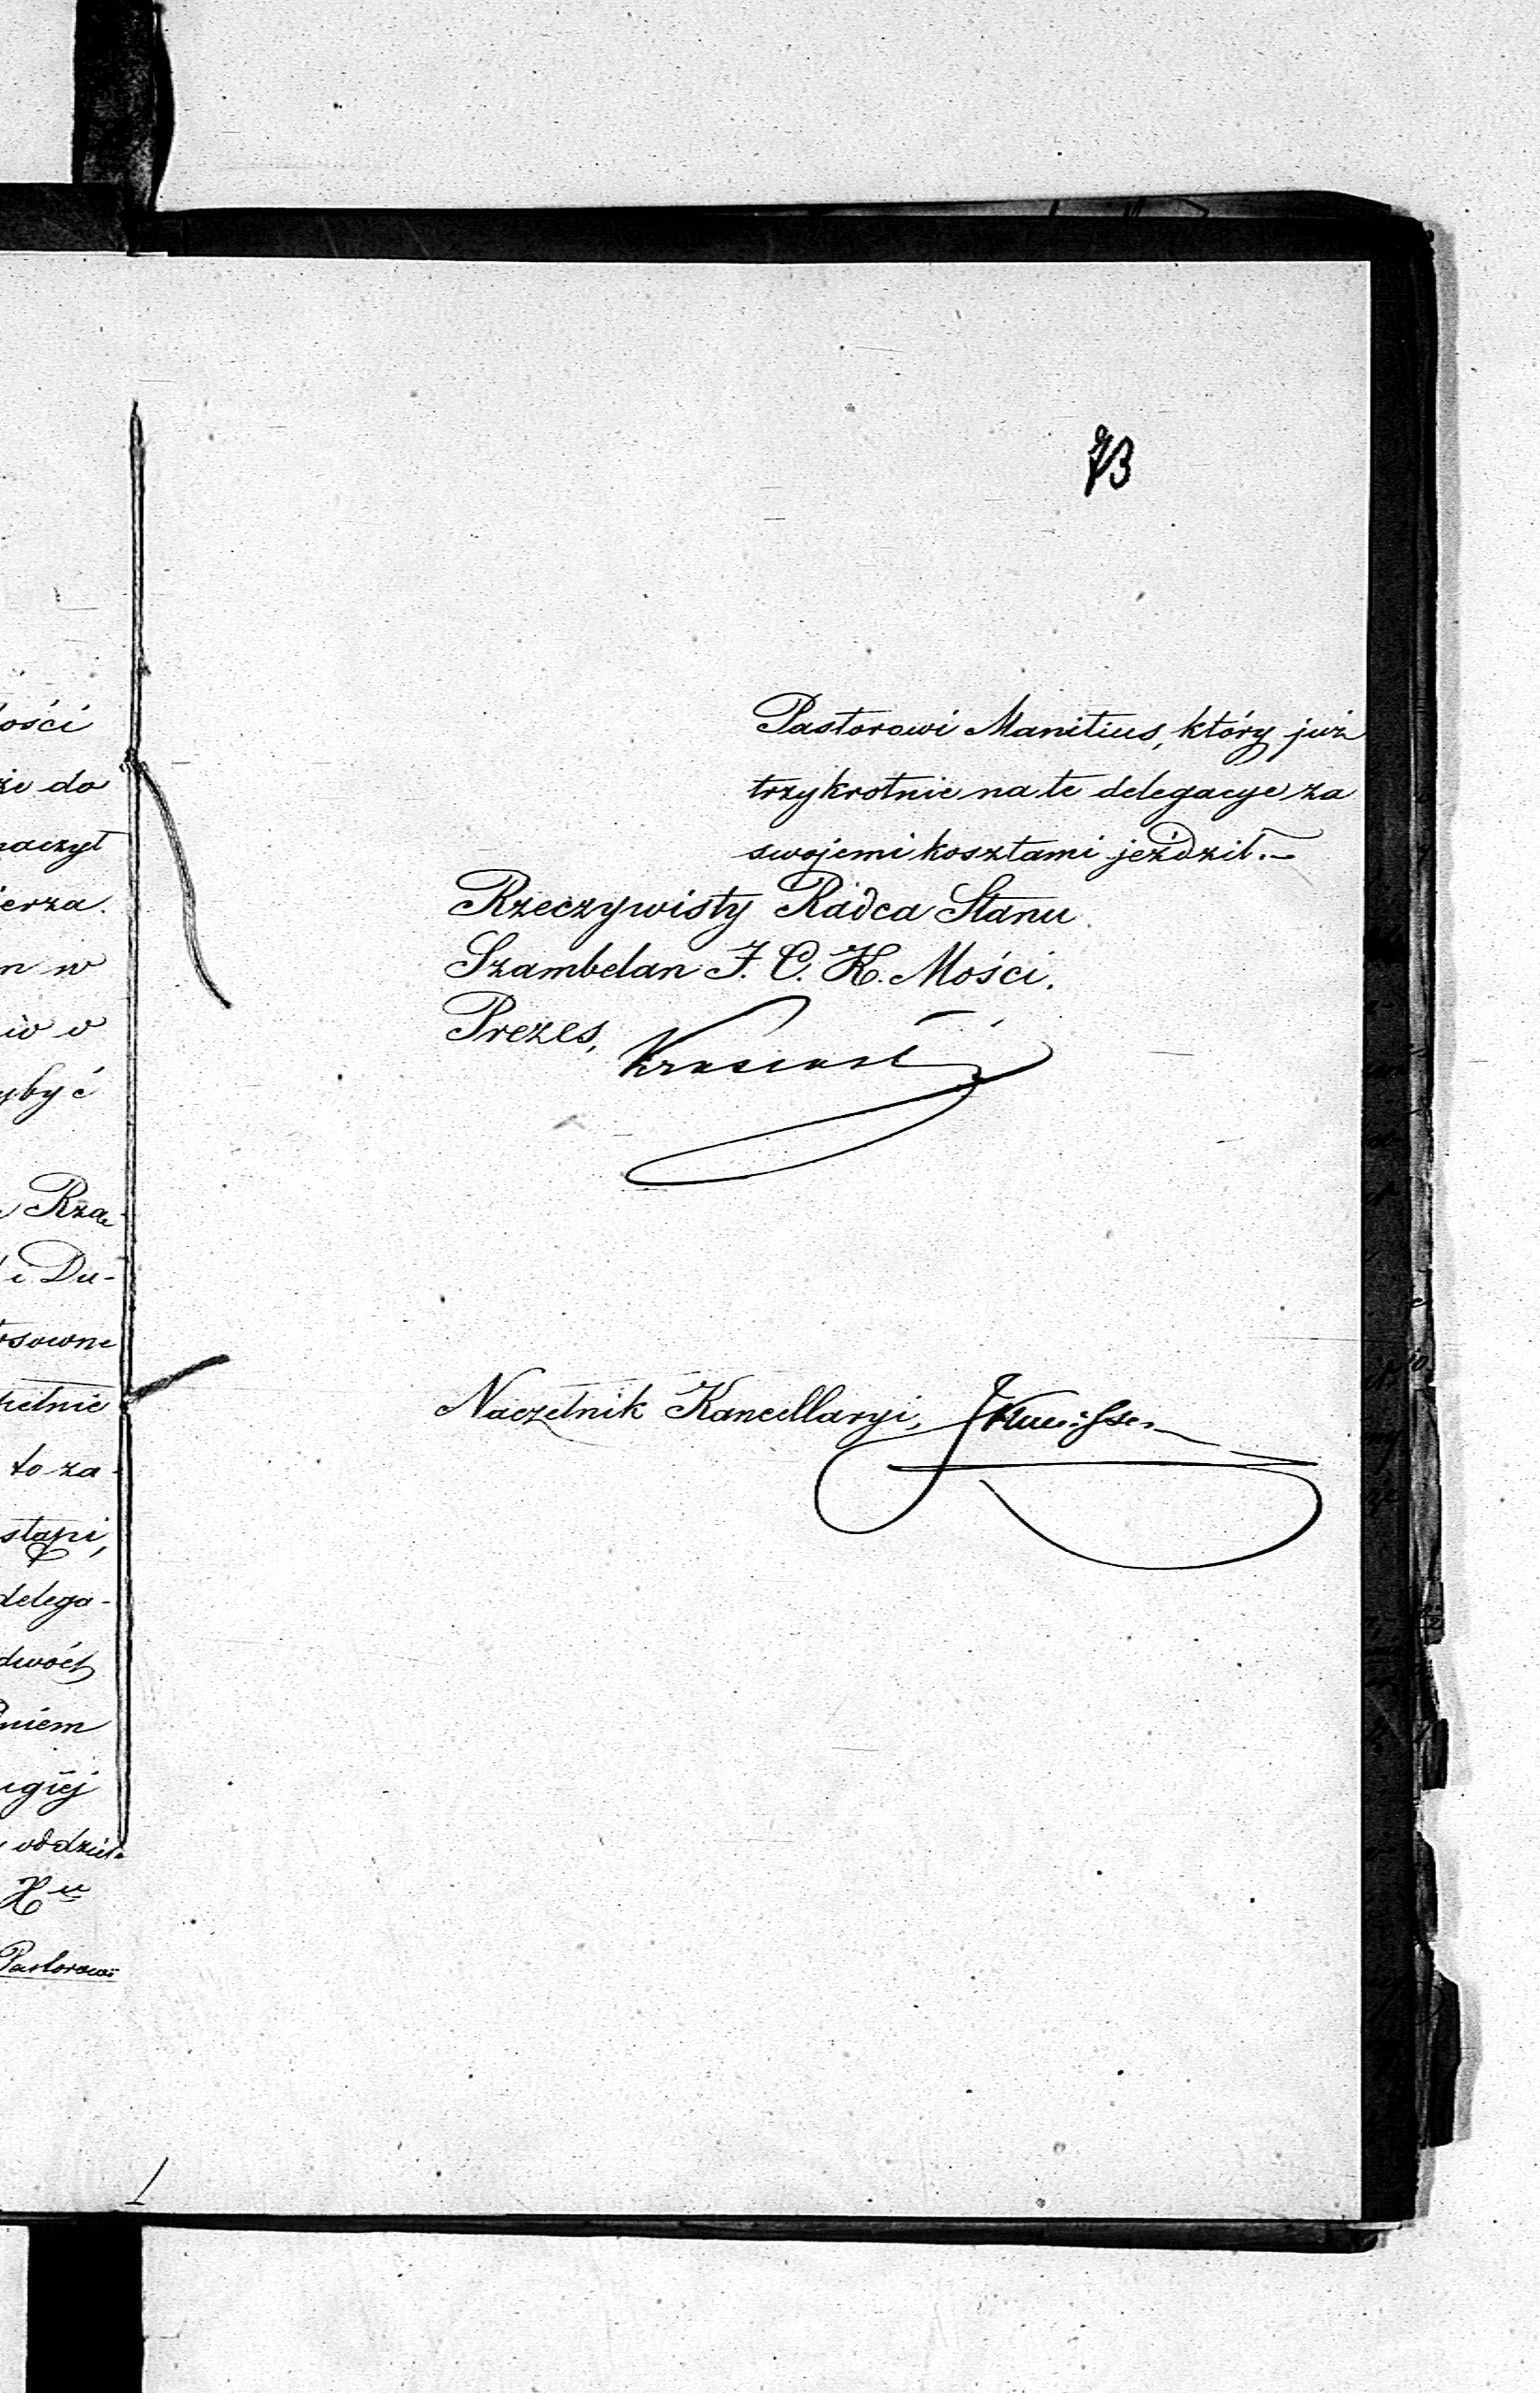 ości
że do
naczył
ierza.
n w
ów o
zybyć
Rzą-
i Du-
osowne
pełnie
to za-
stąpi,
delega-
dwóch
niem
ugiéj
oddziel-
Pastorowi
73
Pastorowi Manitius, który już
trzykrotnie na te delegacye za
swojemi kosztami jeździł.—
Rzeczywisty Radca Stanu
Szambelan J. C. K. Mości.
Prezes, Krasiński
Naczelnik Kancellaryi,
1